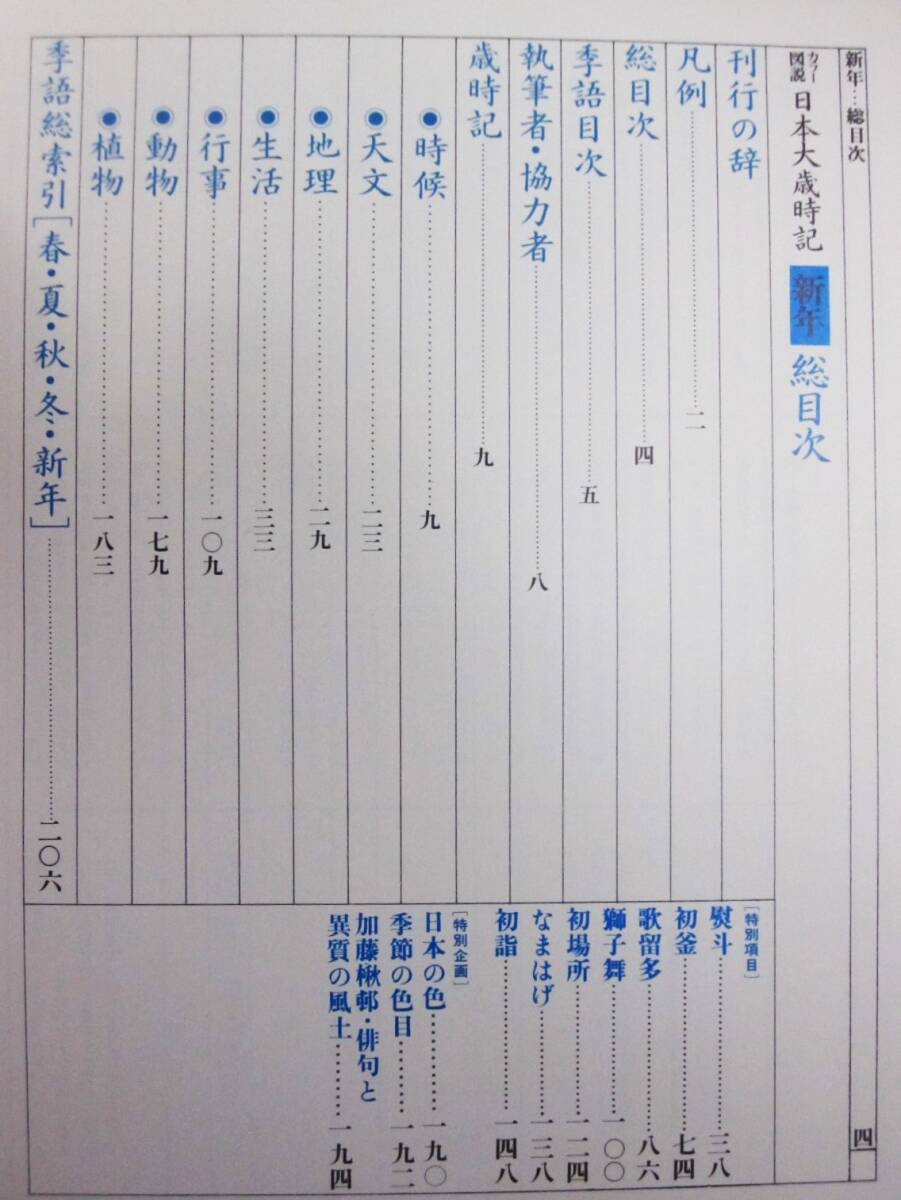 新年…総目次
四
カラー図説 日本大歳時記 新年 総目次
刊行の辞
凡例……二
総目次……四
季語目次……五
執筆者・協力者……八
歳時記……九
◉時候……九
◉天文……二三
◉地理……二九
◉生活……三三
◉行事……一〇九
◉動物……一七九
◉植物……一八三
季語総索引［春・夏・秋・冬・新年］……二〇六
［特別項目］
熨斗……三八
初釜……七四
歌留多……八六
獅子舞……一〇〇
初場所……一二四
なまはげ……一三八
初詣……一四八
［特別企画］
日本の色……一九〇
季節の色目……一九二
加藤楸邨・俳句と
異質の風土……一九四